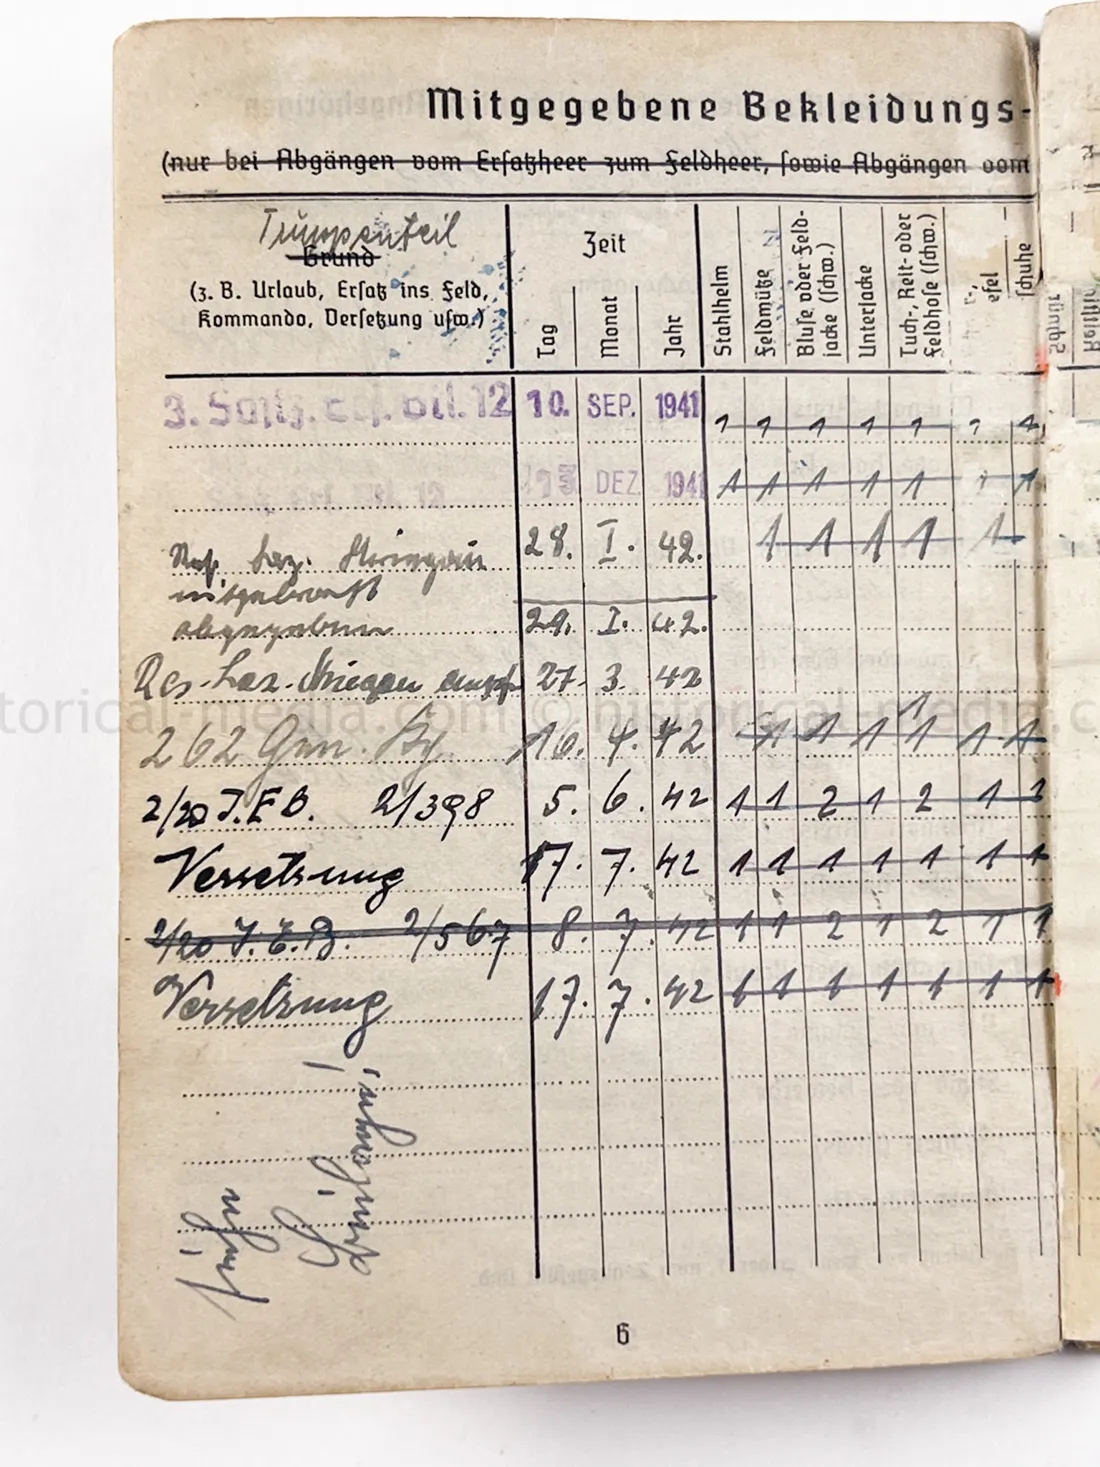 Mitgegebene Bekleidungs-
(nur bei Abgängen vom Ersatzheer zum Feldheer, sowie Abgängen vom
Truppenteil
Grund
(z. B. Urlaub, Ersatz ins Feld,
Kommando, Versetzung usw.)
Zeit
Tag
Monat
Jahr
Stahlhelm
Feldmütze
Bluse oder Feld-
jacke (schw.)
Unterjacke
Tuch-, Reit- oder
Feldhose (schw.)
schuhe
3. Ers. Btl. 12 10. SEP. 1941 1 1 1 1 1 1 1
12 DEZ 1941 1 1 1 1 1 1 1
Res. Laz. Striegau 28. I. 42. 1 1 1 1 1
mitgebracht
abgegeben 29. I. 42.
Res.-Laz.-Striegau empf. 27. 3. 42
1
262 Gen. Kp. 16. 4. 42 1 1 1 1 1 1
2/20 I.E.B. 2/398 5. 6. 42 1 1 2 1 2 1 1
Versetzung 17. 7. 42 1 1 1 1 1 1 1
2/20 I.E.B. 2/567 8. 7. 42 1 1 2 1 2 1 1
Versetzung 17. 7. 42 1 1 1 1 1 1 1
6
historical-media.com © historical-media.c